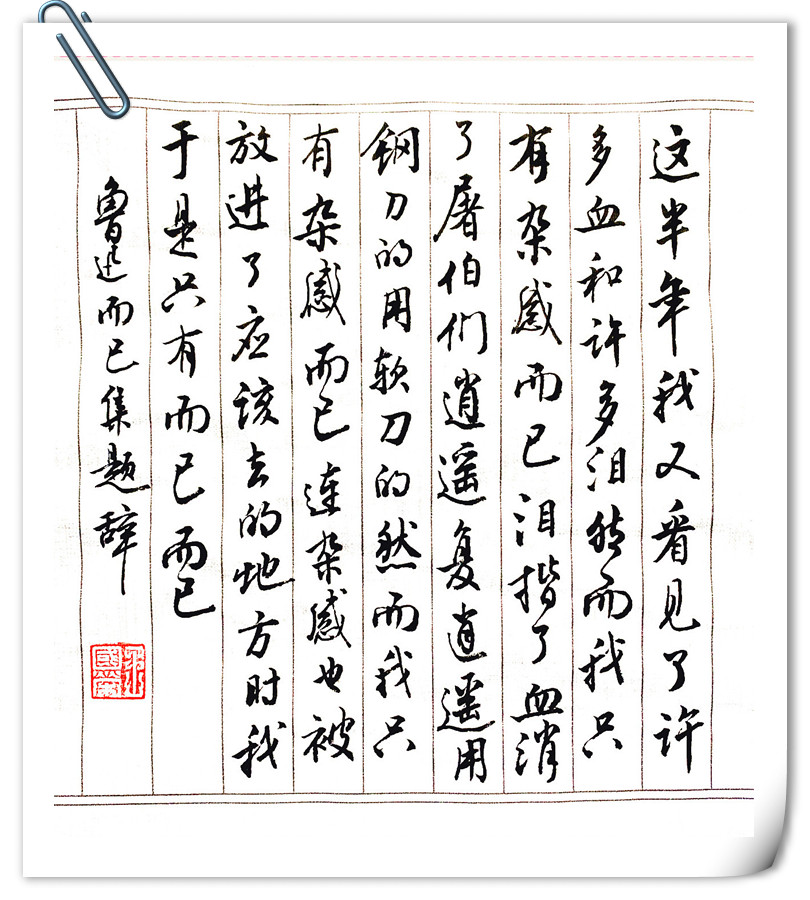 这半年我又看见了许
多血和许多泪然而我只
有杂感而已泪揩了血消
了屠伯们逍遥复逍遥用
钢刀的用软刀的然而我只
有杂感而已连杂感也被
放进了应该去的地方时我
于是只有而已而已
鲁迅而已集题辞